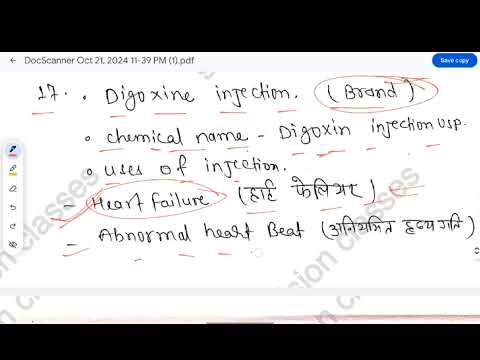 DocScanner Oct 21, 2024 11-39 PM (1).pdf
Save copy
17. • Digoxine injection. (Brand)
• chemical name - Digoxin injection USP.
• uses of injection.
- Heart failure (हार्ट फेलियर)
- Abnormal heart Beat (अनियमित हृदय गति)
sion classes